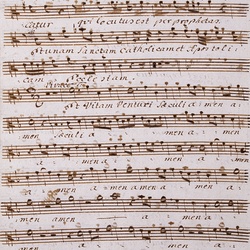 catur qui locutus est per prophetas.
Et unam Sanctam Catholicam et Aposto li
cam Ecclesiam.
Et Vitam Venturi Saeculi a men a
men Saeculi a men a
a men a men a
a men a men a men a
men a men a men
a men a men a